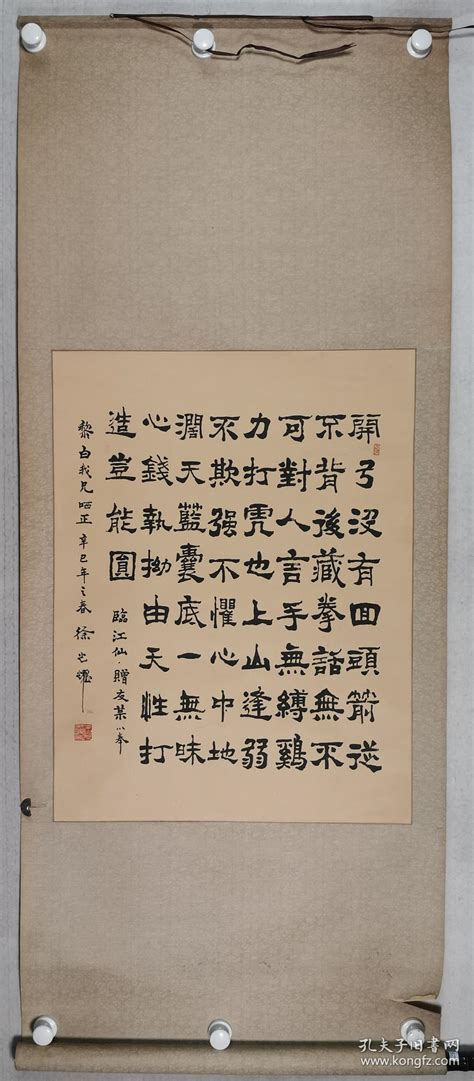 開弓没有回頭箭從
不背後藏拳話無不
可對人言手無縛鷄
力打虎也上山逢弱
不欺强不懼心中地
濶天藍囊底一無昧
心錢執拗由天性打
造豈能圓
臨江仙·贈友某以奉
黎白我兄哂正辛巳年之春徐光耀
孔夫子旧書网
www.kongfz.com